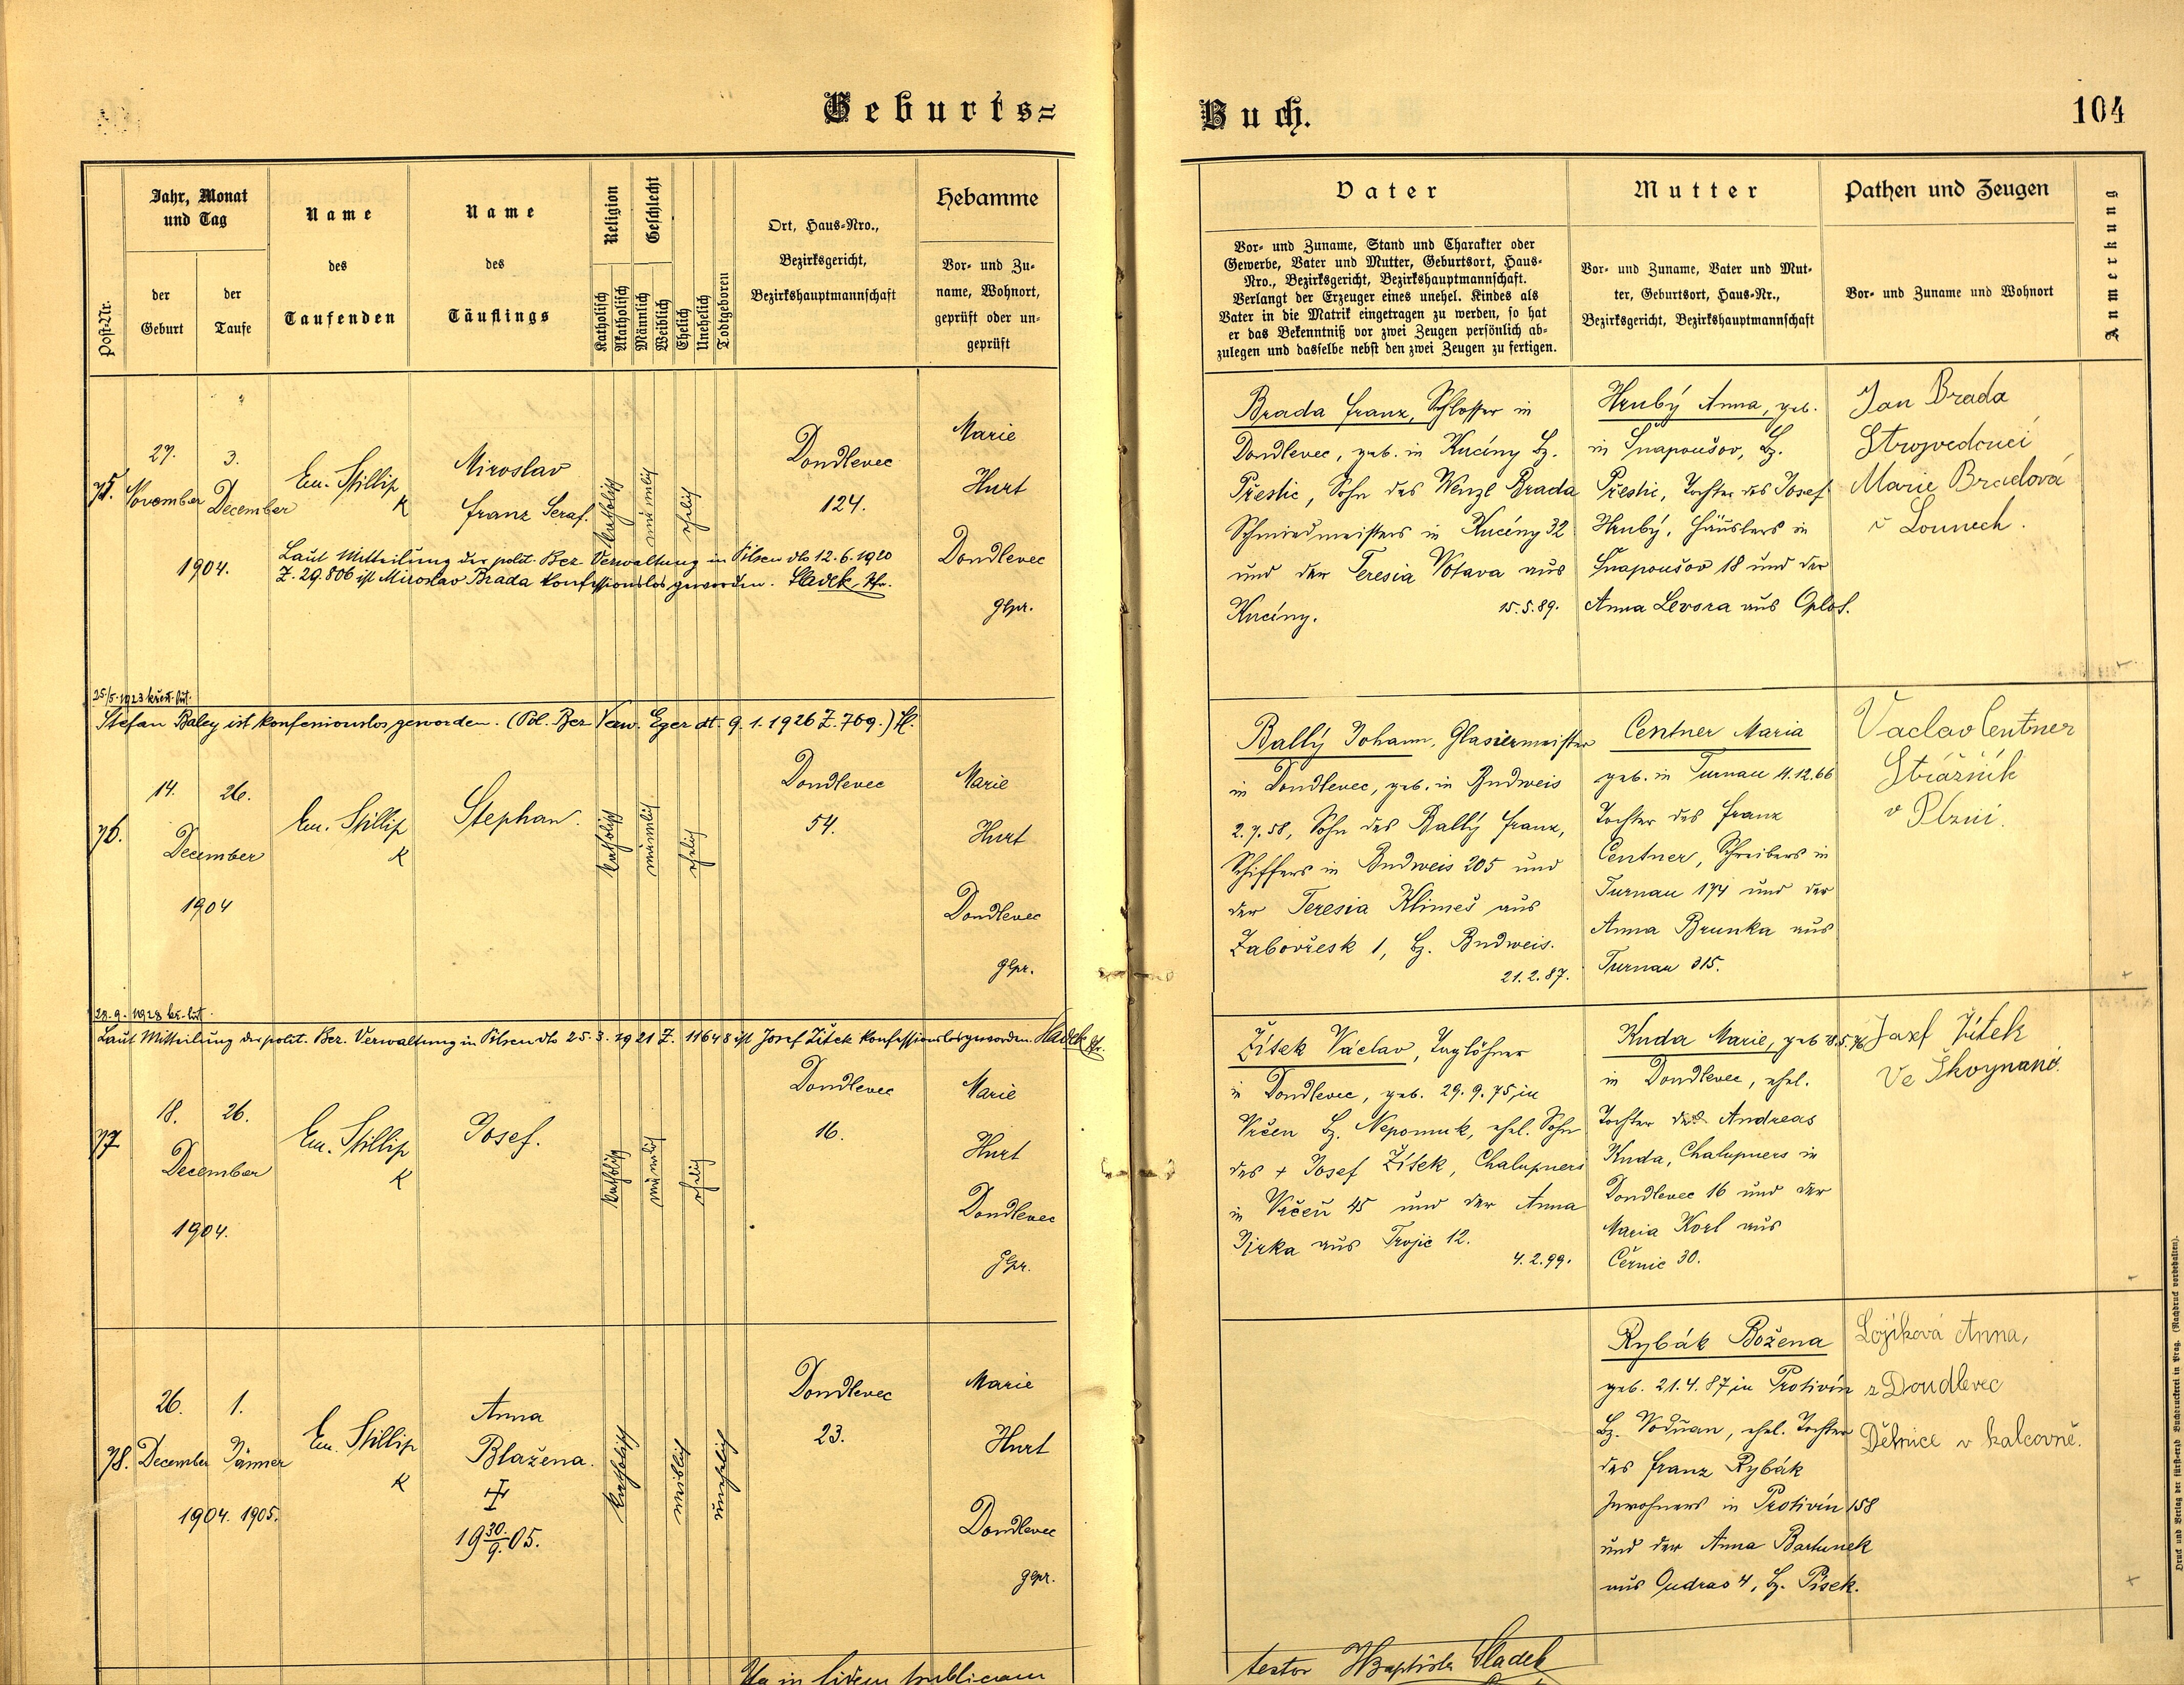 Geburts=
Buch.
104
Post-Nr.
Jahr, Monat
und Tag
der
Geburt
der
Taufe
Name
des
Taufenden
Name
des
Täuflings
Religion
Katholisch
Akatholisch
Geschlecht
Männlich
Weiblich
Ehelich
Unehelich
Todtgeboren
Ort, Haus-Nro.,
Bezirksgericht,
Bezirkshauptmannschaft
Hebamme
Vor- und Zu-
name, Wohnort,
geprüft oder un-
geprüft
Vater
Vor- und Zuname, Stand und Charakter oder
Gewerbe, Vater und Mutter, Geburtsort, Haus-
Nro., Bezirksgericht, Bezirkshauptmannschaft.
Verlangt der Erzeuger eines unehel. Kindes als
Vater in die Matrik eingetragen zu werden, so hat
er das Bekenntniß vor zwei Zeugen persönlich ab-
zulegen und dasselbe nebst den zwei Zeugen zu fertigen.
Mutter
Vor- und Zuname, Vater und Mut-
ter, Geburtsort, Haus-Nr.,
Bezirksgericht, Bezirkshauptmannschaft
Pathen und Zeugen
Vor- und Zuname und Wohnort
Anmerkung
75.
27.
November
3.
December
1904.
Em. Stillip
K
Miroslav
Franz Seraf.
katholisch
männlich
ehelich
Doudlevec
124.
Marie
Hurt
Doudlevec
gepr.
Laut Mitteilung der polit. Bez. Verwaltung in Pilsen dto 12.6.1920
Z. 29.806 ist Miroslav Brada konfessionslos geworden. Sladek
Brada Franz, Schlosser in
Doudlevec, geb. in Kucíny Bz.
Přestic, Sohn des Wenzl Brada
Schmiedmeisters in Kucíny 32
und der Teresia Votava aus
Kucíny.
15.5.89.
Hrubý Anna, geb.
in Snapoušov, Bz.
Přestic, Tochter des Josef
Hrubý, Häuslers in
Snapoušov 18 und der
Anna Levora aus Oplot.
Jan Brada
Strojvedoucí
Marie Bradová
v Lounech.
25./5. 1923
Stefan Baley ist konfesionslos geworden. (Pol. Bez Verw. Eger dt. 9.1.1926 Z. 769.)
76.
14.
26.
December
1904
Em. Stillip
K
Stephan.
katholisch
männlich
ehelich
Doudlevec
54.
Marie
Hurt
Doudlevec
gepr.
Ballý Johann, Glasermeister
in Doudlevec, geb. in Budweis
2.7.58, Sohn des Ballý Franz,
Schiffers in Budweis 205 und
der Teresia Klimeš aus
Zabovřesk 1, Bz. Budweis.
21.2.87.
Centner Maria
geb. in Turnau 11.12.66
Tochter des Franz
Centner, Schreibers in
Turnau 174 und der
Anna Brunka aus
Turnau 315.
Vaclav Centner
Strážník
v Plzni.
+
28.9. 1928
Laut Mitteilung der polit. Bez. Verwaltung in Pilsen dto 25.3.1921 Z. 11648 ist Josef Žitek konfessionslos geworden. Sladek
77
18.
26.
December
1904.
Em. Stillip
K
Josef.
katholisch
männlich
ehelich
Doudlevec
16.
Marie
Hurt
Doudlevec
gepr.
Žítek Václav, Taglöhner
in Doudlevec, geb. 29.9.75, in
Vrčen Bz. Nepomuk, ehel. Sohn
des + Josef Žítek, Chalupners
in Vrčen 45 und der Anna
Jirka aus Trojic 12.
4.2.99.
Kuda Marie, geb 18.5.76
in Doudlevec, ehel.
Tochter des Andreas
Kuda, Chalupners in
Doudlevec 16 und der
Maria Korl aus
Černic 30.
Josef Žítek
Ve Škvrňanů.
78.
26.
December
1.
Jänner
1904. 1905.
Em. Stillip
K
Anna
Blažena.
+
19 30./9. 05.
katholisch
weiblich
unehelich
Doudlevec
23.
Marie
Hurt
Doudlevec
gepr.
Rybák Božena
geb. 21.4.87 in Protivín
Bz. Vodňan, ehel. Tochter
des Franz Rybák
Inwohners in Protivín 158
und der Anna Bartunek
aus Oudraž 4, Bz. Písek.
Lojiková Anna,
z Doudlevec
Dělnice v kalcovně.
+
Ita in fidem publicam
testor JBaptista Sladek
Druck und Verlag der fürst-erzb Buchdruckerei in Prag. (Nachdruck vorbehalten).